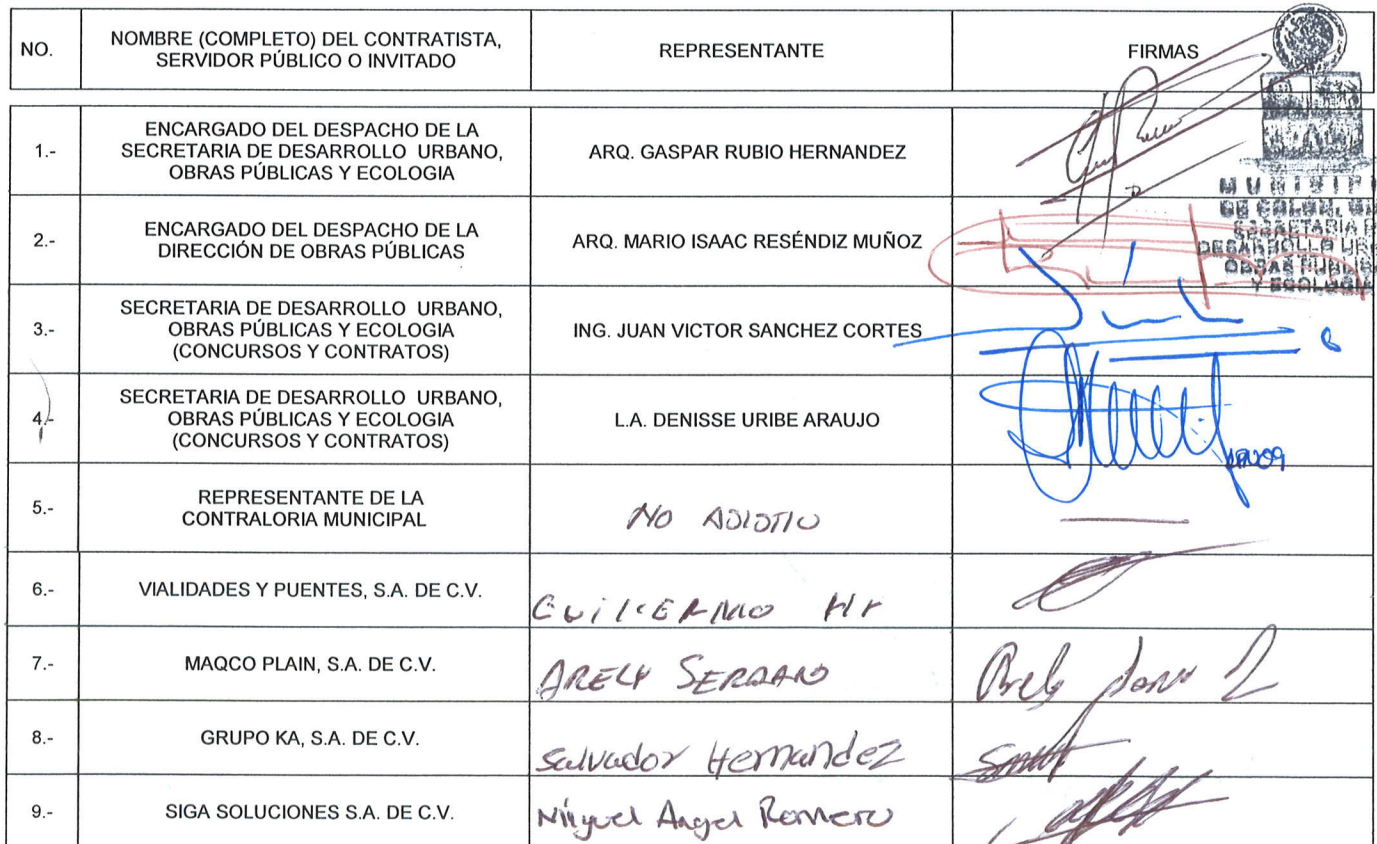 NO.
NOMBRE (COMPLETO) DEL CONTRATISTA,
SERVIDOR PÚBLICO O INVITADO
REPRESENTANTE
FIRMAS
1.-
ENCARGADO DEL DESPACHO DE LA
SECRETARIA DE DESARROLLO URBANO,
OBRAS PÚBLICAS Y ECOLOGIA
ARQ. GASPAR RUBIO HERNANDEZ
2.-
ENCARGADO DEL DESPACHO DE LA
DIRECCIÓN DE OBRAS PÚBLICAS
ARQ. MARIO ISAAC RESÉNDIZ MUÑOZ
DE COLON,
SECRETARIA
DESARROLLO
OBRAS
Y ECOLOGIA
3.-
SECRETARIA DE DESARROLLO URBANO,
OBRAS PÚBLICAS Y ECOLOGIA
(CONCURSOS Y CONTRATOS)
ING. JUAN VICTOR SANCHEZ CORTES
4.-
SECRETARIA DE DESARROLLO URBANO,
OBRAS PÚBLICAS Y ECOLOGIA
(CONCURSOS Y CONTRATOS)
L.A. DENISSE URIBE ARAUJO
5.-
REPRESENTANTE DE LA
CONTRALORIA MUNICIPAL
NO ASISTIO
6.-
VIALIDADES Y PUENTES, S.A. DE C.V.
GUILLERMO
7.-
MAQCO PLAIN, S.A. DE C.V.
ARELY SERRANO
8.-
GRUPO KA, S.A. DE C.V.
Salvador Hernandez
9.-
SIGA SOLUCIONES S.A. DE C.V.
Miguel Angel Romero